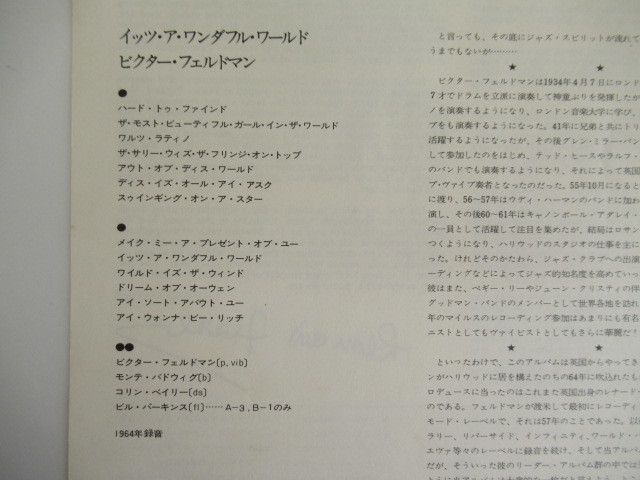 イッツ・ア・ワンダフル・ワールド
ビクター・フェルドマン
●
ハード・トゥ・ファインド
ザ・モスト・ビューティフル・ガール・イン・ザ・ワールド
ワルツ・ラティノ
ザ・サリー・ウィズ・ザ・フリンジ・オン・トップ
アウト・オブ・ディス・ワールド
ディス・イズ・オール・アイ・アスク
スゥインギング・オン・ア・スター
●
メイク・ミー・ア・プレゼント・オブ・ユー
イッツ・ア・ワンダフル・ワールド
ワイルド・イズ・ザ・ウィンド
ドリーム・オブ・オーウェン
アイ・ソート・アバウト・ユー
アイ・ウォンナ・ビー・リッチ
●●
ビクター・フェルドマン[p, vib]
モンテ・バドウィグ[b]
コリン・ベイリー[ds]
ビル・パーキンス[fl]……A-3, B-1のみ
1964年録音
と言っても、その底にジャズ・スピリットが流れて
うまでもないが………
★ ★
ビクター・フェルドマンは1934年4月7日にロンド
7才でドラムを立派に演奏して神童ぶりを発揮したが
ノを演奏するようになり、ロンドン音楽大学に学び、
ブをも演奏するようになった。41年に兄弟と共にトリ
活躍するようになったが、その後グレン・ミラー・バン
して参加したのをはじめ、テッド・ヒースやラルフ・
のバンドでも演奏するようになり、それによって英国
プ・ヴァイブ奏者となったのだった。55年10月になると
に渡り、56〜57年はウディ・ハーマンのバンドに加わ
演し、その後60〜61年はキャノンボール・アダレイ・
の一員として活躍して注目を集めたが、結局はロサン
つくようになり、ハリウッドのスタジオの仕事を主に
った。けれどそのかたわら、ジャズ・クラブへの出演
ーディングなどによってジャズ的知名度を高めていっ
彼はまた、ペギー・リーやジューン・クリスティの伴
グッドマン・バンドのメンバーとして世界各地を訪れ
年のマイルスのレコーディング参加はあまりにも有名
ニストとしてもヴァイビストとしてもさらに華麗だ!
★ ★
といったわけで、このアルバムは英国からやってき
ンがハリウッドに居を構えたのちの64年に吹込れたも
ロデュースに当ったのはこれまた英国出身のレナード・
のである。フェルドマンが渡米して最初にレコーディ
モード・レーベルで、それは57年のことであった。以
ラリー、リバーサイド、インフィニティ、ワールド・
エヴァ等々のレーベルに録音を続け、そして当アルバ
だが、そういった彼のリーダー・アルバム群の中では